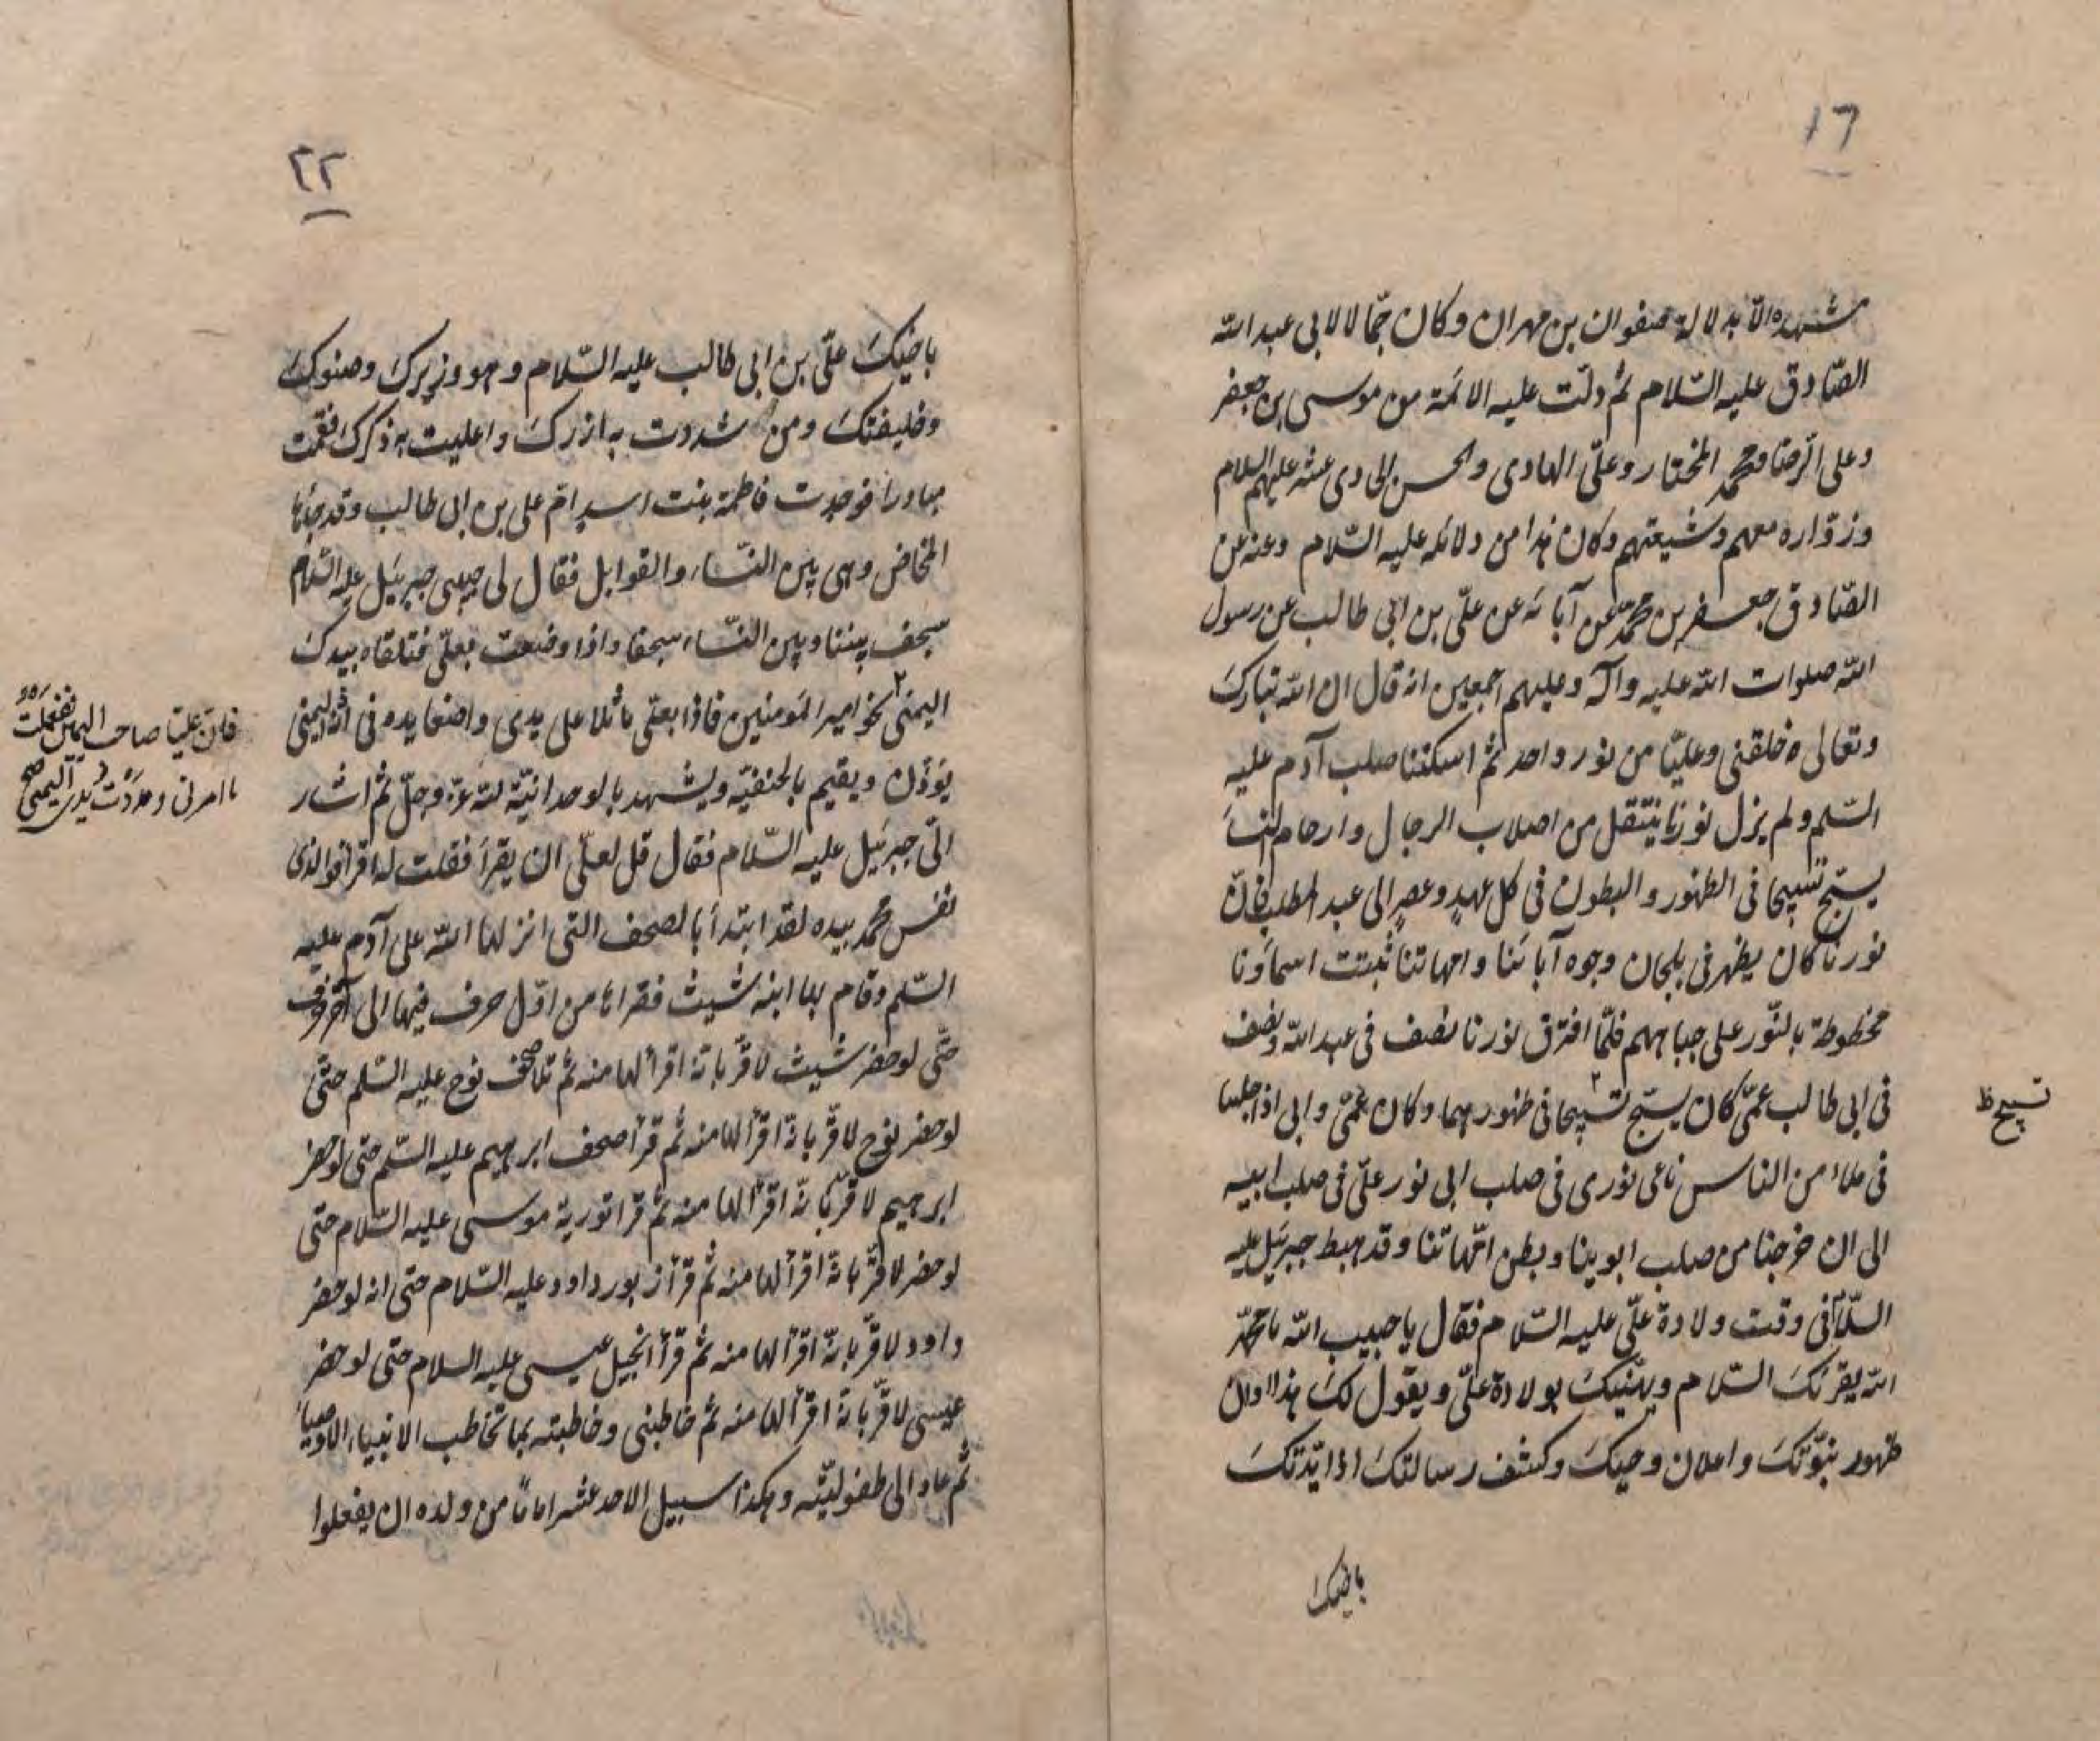 ١٦
مشهده الا بدلالة صفوان بن مهران وكان جمّالا لابى عبد الله
الصّادق عليه السّلام ثم دلّت عليه الائمة من موسى بن جعفر
وعلى الرضا ومحمد المختار وعلىّ الهادى والحسن الحادى عشر عليهم السلام
وزوّاره معهم وشيعتهم وكان هذا من دلائله عليه السّلام وعنه عن
الصّادق جعفر بن محمّد عن آبائه عن علىّ بن ابى طالب عن رسول
الله صلوات الله عليه وآله وعليهم اجمعين انه قال ان الله تبارك
وتعالى خلقنى وعليّا من نور واحد ثم اسكننا صلب آدم عليه
السّلم ولم يزل نورنا ينتقل من اصلاب الرجال وارحام النساء
يسبّح تسبيحا فى الظهور والبطون فى كل عهد وعصر الى عبد المطلب فان
نورنا كان يظهر فى بلجان وجوه آبائنا وامهاتنا ثبتت اسماؤنا
مخطوطة بالنّور على جباههم فلمّا افترق نورنا نصف فى عبد الله ونصف
فى ابى طالب عمّى كان يسبّح تسبيحا فى ظهورهما وكان عمّى وابى اذا جلسا
فى ملاء من الناس ناغى نورى فى صلب ابى نور علىّ فى صلب ابيه
الى ان خرجنا من صلب ابوينا وبطن امّهاتنا وقد هبط جبرئيل عليه
السّلام فى وقت ولادة علىّ عليه السّلام فقال يا حبيب الله يا محمّد
الله يقرئك السّلام ويهنّيك بولادة علىّ ويقول لك هذا اوان
ظهور نبوّتك واعلان وحيك وكشف رسالتك اذ ايّدتك
تسبيح ظ
باخيك
٢٢
باخيك علىّ بن ابى طالب عليه السّلام وهو وزيرك وصنوك
وخليفتك ومن شددت به ازرك واعليت به ذكرك فقمت
مبادرا فوجدت فاطمة بنت اسد امّ على بن ابى طالب وقد جاءها
المخاض وهى بين النّساء والقوابل فقال لى حبيبى جبرئيل عليه السّلام
سجف بيننا وبين النّساء سجفا واذا وضعت بعلىّ فتلقاه بيدك
اليمنى نحو امير المؤمنين فاذا بعلى ماثلا على يدى واضعا يده فى اذنه اليمنى
يؤذن ويقيم بالحنفيّة ويشهد بالوحدانيّة لله عزّ وجلّ ثم اشار
الىّ جبرئيل عليه السّلام فقال قل لعلىّ ان يقرأ فقلت له اقرأ فو الذى
نفس محمّد بيده لقد ابتدأ بالصحف التى انزلها الله على آدم عليه
السّلم وقام بها ابنه شيث فقراها من اوّل حرف فيها الى آخر حرف
حتّى لو حضر شيث لاقرّ بانّه اقرأ لها منه ثم تلا صحف نوح عليه السّلم حتّى
لو حضر نوح لاقرّ بانّه اقرأ لها منه ثم قرأ صحف ابرهيم عليه السّلم حتى لو حضر
ابرهيم لاقرّ بانّه اقرأ لها منه ثم قرا تورية موسى عليه السّلام حتى
لو حضر لاقرّ بانّه اقرأ لها منه ثم قرأ زبور داود عليه السّلام حتى انه لو حضر
داود لاقرّ بانّه اقرأ لها منه ثم قرأ انجيل عيسى عليه السلام حتى لو حضر
عيسى لاقرّ بانّه اقرأ لها منه ثم خاطبنى وخاطبته بما تخاطب الانبياء الاوصياء
ثم عاد الى طفوليّته وهكذا سبيل الاحد عشر اماما من ولده ان يفعلوا
فان عليّا صاحب اليمين ففعلت
ما امرنى ومددت يدى اليمنى صح